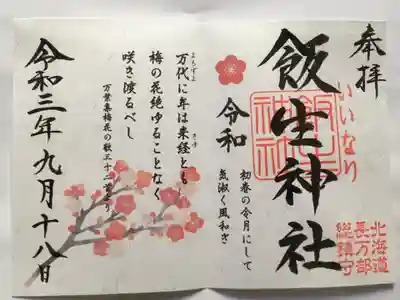 奉拝
いいなり
飯生神社
飯生
神社
北海道
長万部
総鎮守
令和
初春の令月にして
気淑く風和ぎ
万代に年は来経とも
梅の花絶ゆることなく
咲き渡るべし
万葉集梅花の歌三十二首より
令和三年九月十八日